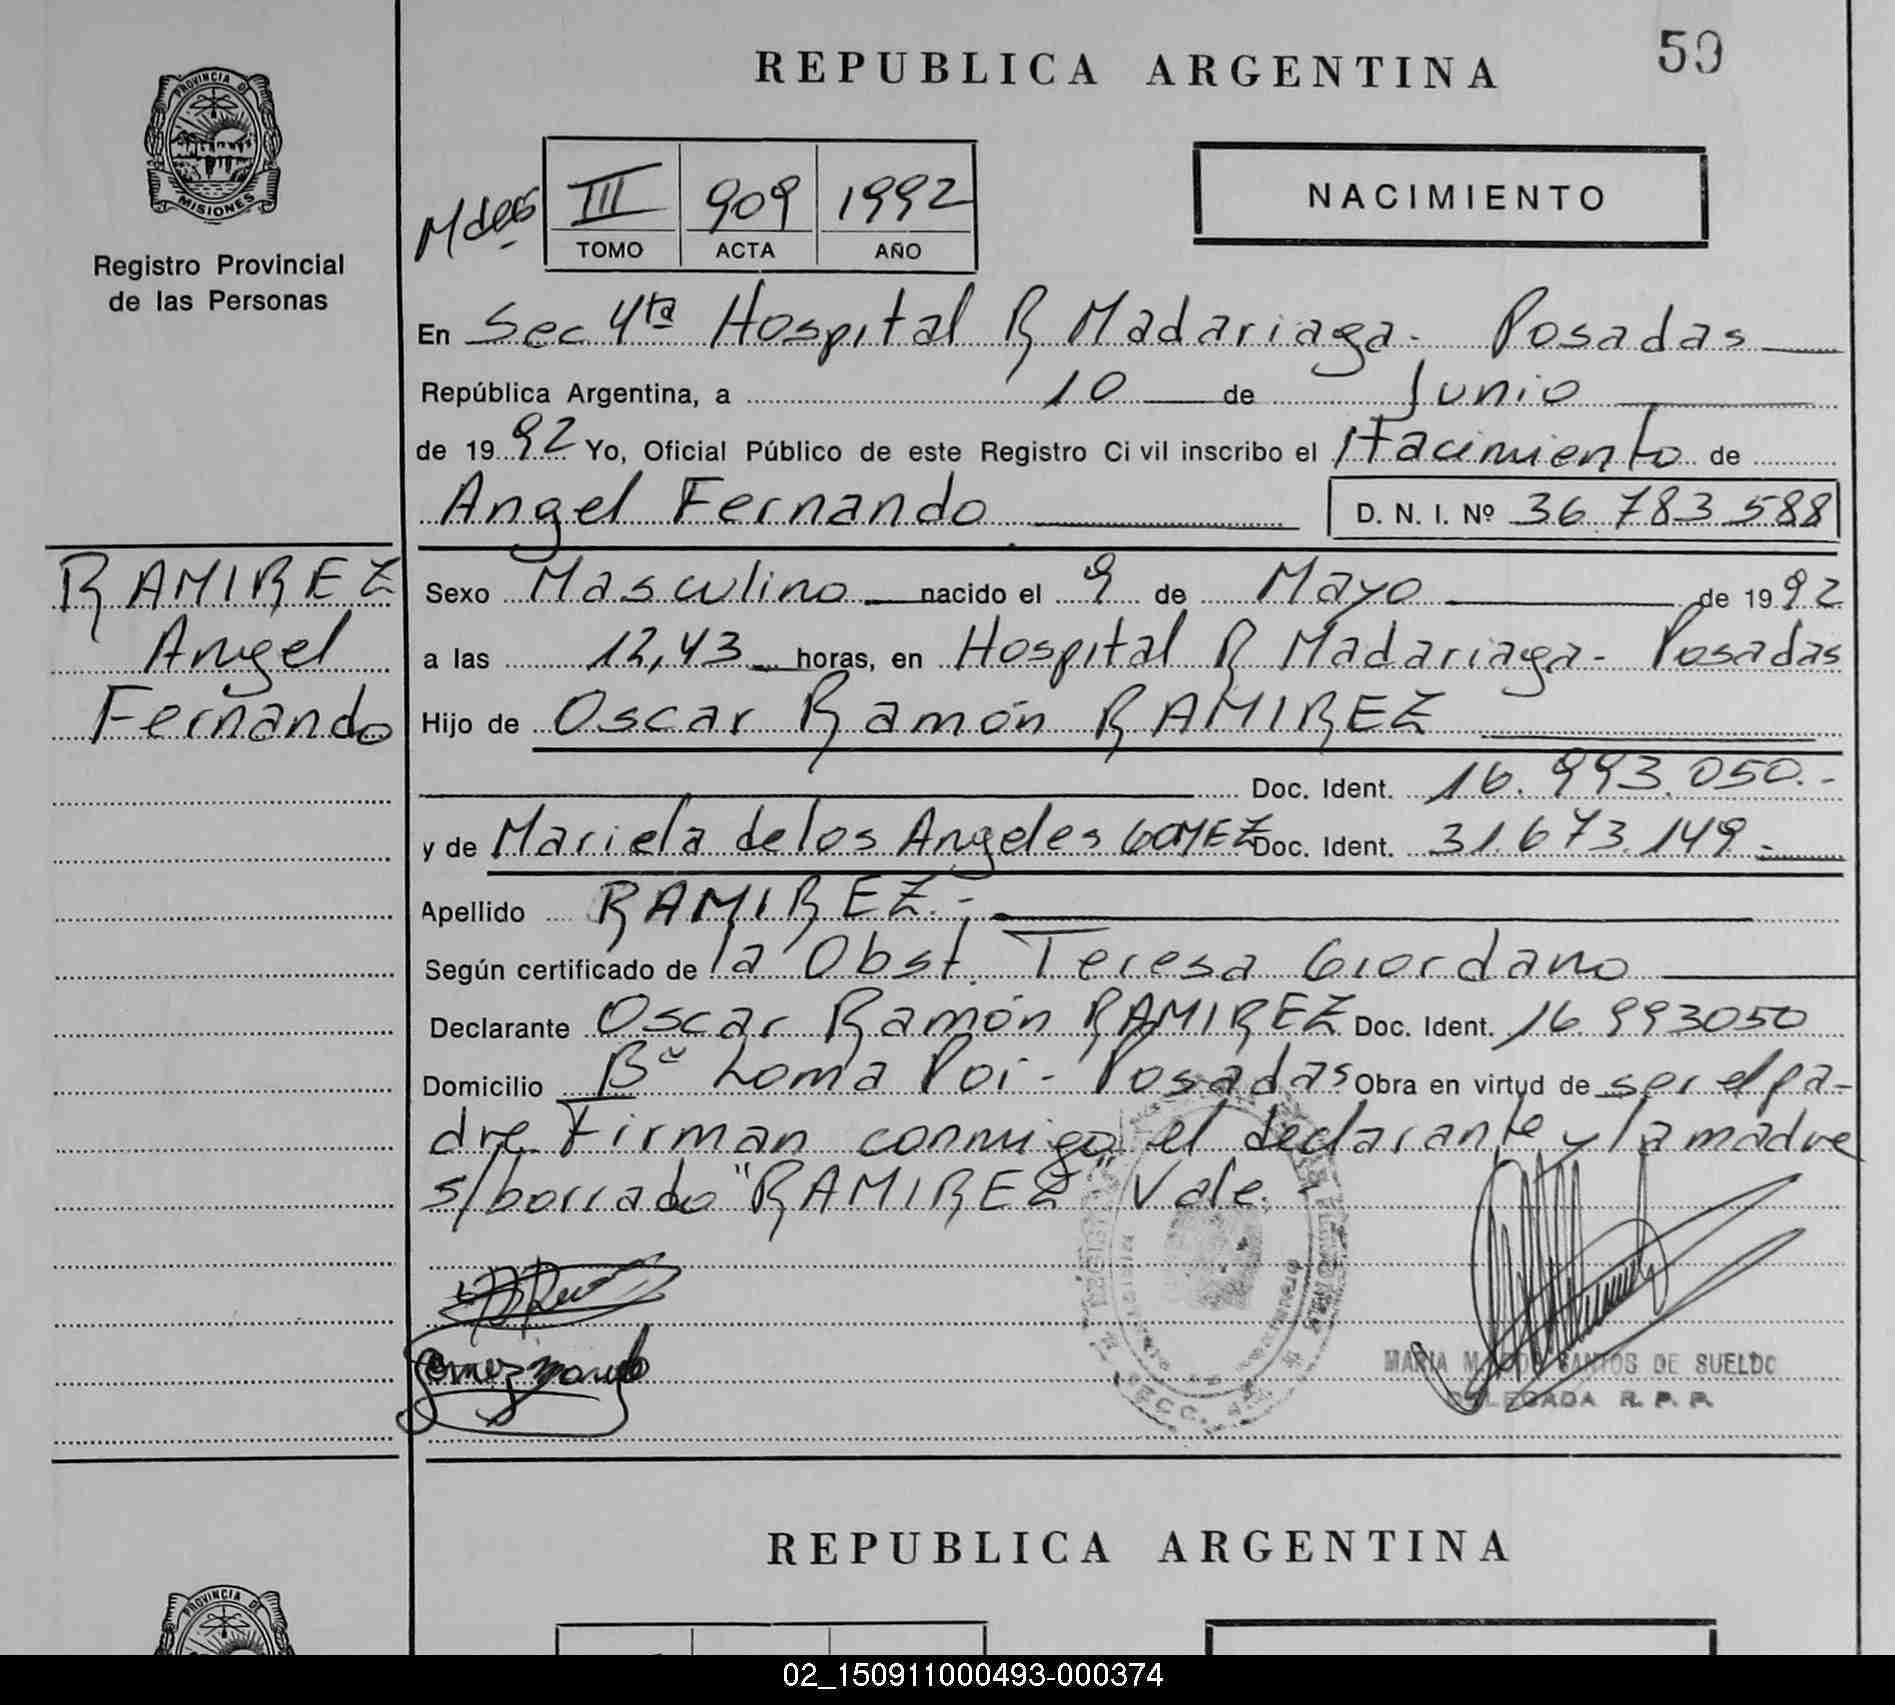 REPUBLICA ARGENTINA
59
PROVINCIA DE
MISIONES
Registro Provincial
de las Personas
III 909 1992
TOMO ACTA AÑO
NACIMIENTO
En Sec 4ta Hospital R Madariaga - Posadas
República Argentina, a 10 de Junio
de 1992 Yo, Oficial Público de este Registro Ci vil inscribo el Nacimiento de
Angel Fernando D. N. I. Nº 36 783 588
RAMIREZ
Angel
Fernando
Sexo Masculino nacido el 9 de Mayo de 1992
a las 12,43 horas, en Hospital R Madariaga - Posadas
Hijo de Oscar Ramón RAMIREZ
Doc. Ident. 16.993.050.-
y de Mariela de los Angeles GOMEZ Doc. Ident. 31.673.149.-
Apellido RAMIREZ.-
Según certificado de la Obst. Teresa Giordano
Declarante Oscar Ramón RAMIREZ Doc. Ident. 16 993050
Domicilio Bº Loma Poi - Posadas Obra en virtud de ser el pa-
dre Firman conmigo el declarante y la madre
s/borrado "RAMIREZ" Vale.-
Gomez
MARIA M. DOS SANTOS DE SUELDO
DELEGADA R. P. P.
REPUBLICA ARGENTINA
PROVINCIA DE
02_150911000493-000374